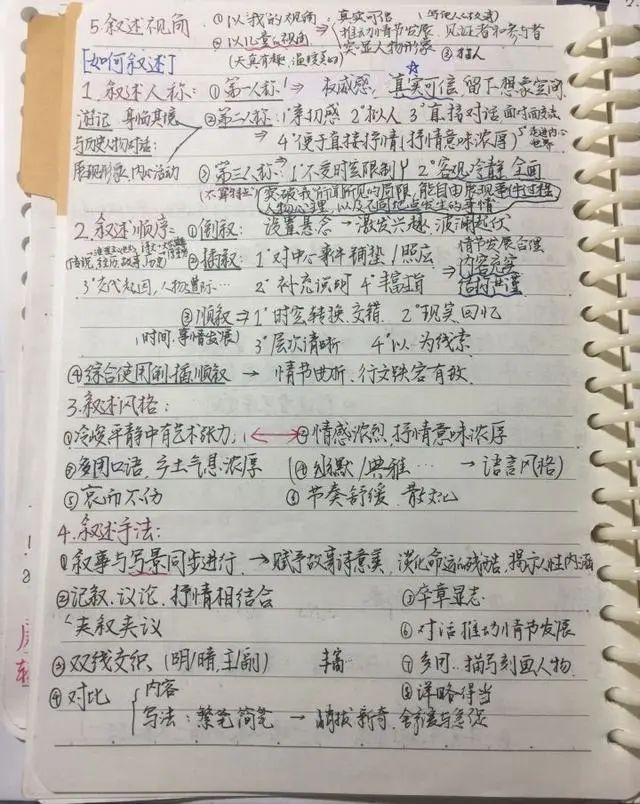 5.叙述视角 ①以我的视角 → 真实可信
②以儿童的视角 推动情节发展 见证者和参与者
(天真有趣,温暖美好) 突显人物形象 ③
[如何叙述]
1.叙述人称: ①第一人称 → 权威感, 真实可信 留下想象空间
游记 身临其境 ②第二人称: 1°亲切感 2°拟人 3°直接对话
与历史人物对话: → 4°便于直接抒情(抒情意味浓厚) 5°走进内心世界
展现形象、内心活动 ③第三人称 → 1°不受时空限制 2°客观冷静 全面
突破我所诉所见的局限,能自由展现事件过程
人物心理,以及不同地点发生的事情
2.叙述顺序: ①倒叙: 设置悬念 → 激发兴趣,波澜起伏
②插叙: 1°对中心事件铺垫/照应 情节发展合理
3°交代起因,人物 2°补充说明 4°丰富 → 内容充实
结构严谨
③顺叙 → 1°时空转换.交错 2°现实.回忆
(时间.事情发展) 3°层次清晰 4°以 为线索
④综合使用倒插顺叙 → 情节曲折.行文张弛有致.
3.叙述风格:
①冷峻平静中有艺术张力, ②情感浓烈,抒情意味浓厚
③多用口语,乡土气息浓厚 (④幽默/典雅… → 语言风格)
⑤哀而不伤 ⑥节奏舒缓 散文化
4.叙述手法:
①叙事与写景同步进行, → 赋予故事诗意美,淡化命运的残酷,揭示人性内涵
②记叙.议论.抒情相结合 ⑤卒章显志
夹叙夹议 ⑥对话推动情节发展
③双线交织 (明/暗,主/副) 丰富 ⑦多用..描写刻画人物.
④对比 内容 ⑧详略得当
写法:繁笔简笔 → 新奇